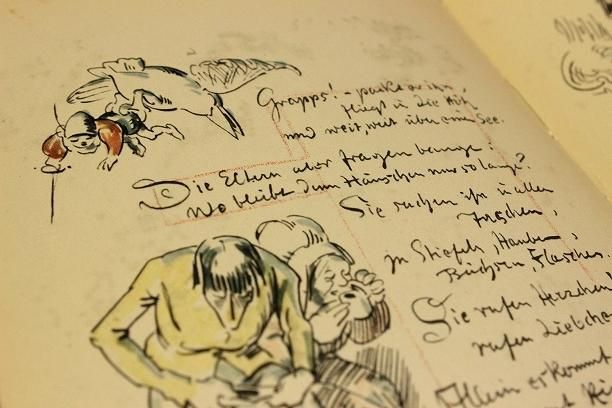 Grapps! – packt er ihn,
fliegt in die Höh,
und weit, weit über einen See.
Die Eltern aber fragen bange:
Wo bleibt denn Hänschen nur so lange?
Sie suchen ihn in allen
Taschen,
in Stiefeln, Hauben,
Büchsen, Flaschen.
Sie rufen Herzchen,
rufen Liebchen
Allein er kommt